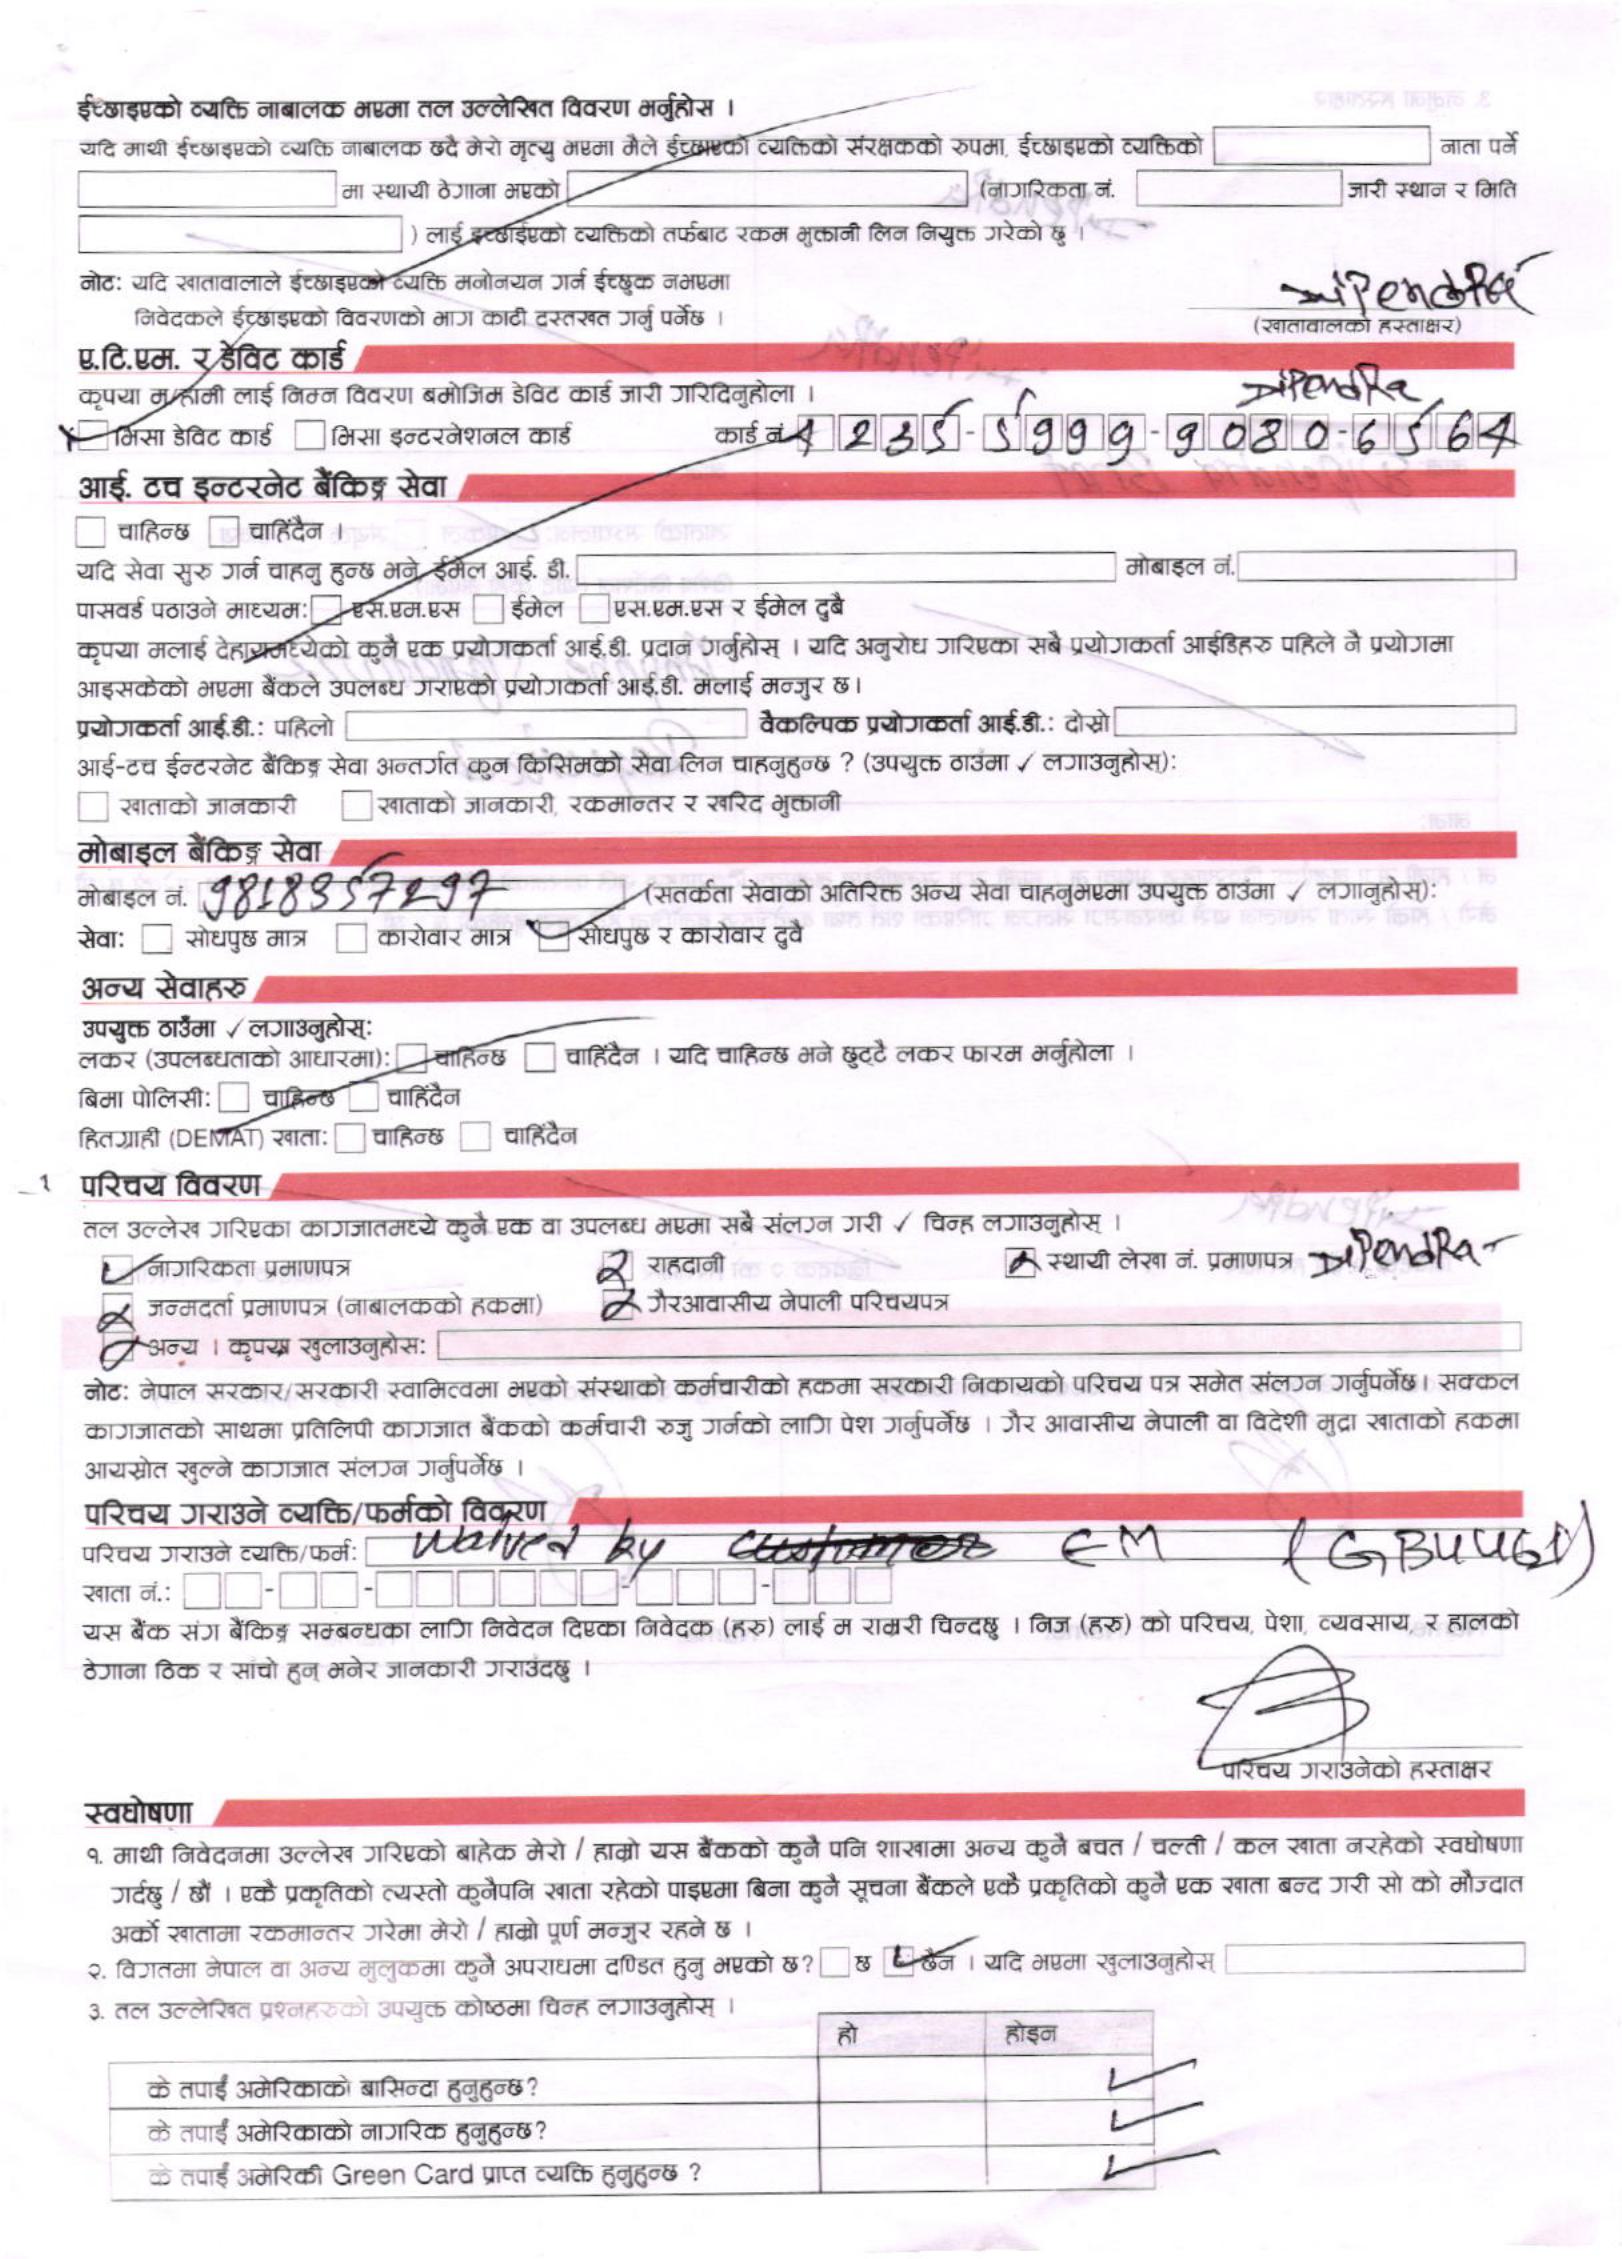 ईच्छाइएको व्यक्ति नाबालक भएमा तल उल्लेखित विवरण भर्नुहोस ।
यदि माथी ईच्छाइएको व्यक्ति नाबालक छदै मेरो मृत्यु भएमा मैले ईच्छाएको व्यक्तिको संरक्षकको रुपमा, ईच्छाइएको व्यक्तिको नाता पर्ने
मा स्थायी ठेगाना भएको (नागरिकता नं. जारी स्थान र मिति
) लाई इच्छाईएको व्यक्तिको तर्फबाट रकम भुक्तानी लिन नियुक्त गरेको छु ।
नोट: यदि खातावालाले ईच्छाइएको व्यक्ति मनोनयन गर्न ईच्छुक नभएमा
निवेदकले ईच्छाइएको विवरणको भाग काटी दस्तखत गर्नु पर्नेछ ।
Dipendra
(खातावालको हस्ताक्षर)
ए.टि.एम. र डेविट कार्ड
कृपया म/हामी लाई निम्न विवरण बमोजिम डेविट कार्ड जारी गरिदिनुहोला ।
Dipendra
भिसा डेविट कार्ड भिसा इन्टरनेशनल कार्ड कार्ड नं. 4235-5999-9080-6564
आई. टच इन्टरनेट बैंकिङ्ग सेवा
चाहिन्छ चाहिंदैन ।
यदि सेवा सुरु गर्न चाहनु हुन्छ भने, ईमेल आई. डी. मोबाइल नं.
पासवर्ड पठाउने माध्यम: एस.एम.एस ईमेल एस.एम.एस र ईमेल दुबै
कृपया मलाई देहायमध्येको कुनै एक प्रयोगकर्ता आई.डी. प्रदान गर्नुहोस् । यदि अनुरोध गरिएका सबै प्रयोगकर्ता आईडिहरु पहिले नै प्रयोगमा
आइसकेको भएमा बैंकले उपलब्ध गराएको प्रयोगकर्ता आई.डी. मलाई मन्जुर छ।
प्रयोगकर्ता आई.डी.: पहिलो वैकल्पिक प्रयोगकर्ता आई.डी.: दोस्रो
आई-टच ईन्टरनेट बैंकिङ्ग सेवा अन्तर्गत कुन किसिमको सेवा लिन चाहनुहुन्छ ? (उपयुक्त ठाउंमा ✓ लगाउनुहोस्):
खाताको जानकारी खाताको जानकारी, रकमान्तर र खरिद भुक्तानी
मोबाइल बैंकिङ्ग सेवा
मोबाइल नं. 9818357297 (सतर्कता सेवाको अतिरिक्त अन्य सेवा चाहनुभएमा उपयुक्त ठाउंमा ✓ लगानुहोस्):
सेवा: सोधपुछ मात्र कारोवार मात्र सोधपुछ र कारोवार दुवै
अन्य सेवाहरु
उपयुक्त ठाउँमा ✓ लगाउनुहोस्:
लकर (उपलब्धताको आधारमा): चाहिन्छ चाहिंदैन । यदि चाहिन्छ भने छुट्टै लकर फारम भर्नुहोला ।
बिमा पोलिसी: चाहिन्छ चाहिंदैन
हितग्राही (DEMAT) खाता: चाहिन्छ चाहिंदैन
परिचय विवरण
तल उल्लेख गरिएका कागजातमध्ये कुनै एक वा उपलब्ध भएमा सबै संलग्न गरी ✓ चिन्ह लगाउनुहोस् ।
नागरिकता प्रमाणपत्र राहदानी स्थायी लेखा नं. प्रमाणपत्र Dipendra
जन्मदर्ता प्रमाणपत्र (नाबालकको हकमा) गैरआवासीय नेपाली परिचयपत्र
अन्य । कृपया खुलाउनुहोस:
नोट: नेपाल सरकार/सरकारी स्वामित्वमा भएको संस्थाको कर्मचारीको हकमा सरकारी निकायको परिचय पत्र समेत संलग्न गर्नुपर्नेछ। सक्कल
कागजातको साथमा प्रतिलिपी कागजात बैंकको कर्मचारी रुजु गर्नको लागि पेश गर्नुपर्नेछ । गैर आवासीय नेपाली वा विदेशी मुद्रा खाताको हकमा
आयस्रोत खुल्ने कागजात संलग्न गर्नुपर्नेछ ।
परिचय गराउने व्यक्ति/फर्मको विवरण
परिचय गराउने व्यक्ति/फर्म: waived by customer EM (GBUU61)
खाता नं.:
यस बैंक संग बैंकिङ्ग सम्बन्धका लागि निवेदन दिएका निवेदक (हरु) लाई म राम्ररी चिन्दछु । निज (हरु) को परिचय, पेशा, व्यवसाय, र हालको
ठेगाना ठिक र सांचो हुन् भनेर जानकारी गराउंदछु ।
परिचय गराउनेको हस्ताक्षर
स्वघोषणा
१. माथी निवेदनमा उल्लेख गरिएको बाहेक मेरो / हाम्रो यस बैंकको कुनै पनि शाखामा अन्य कुनै बचत / चल्ती / कल खाता नरहेको स्वघोषणा
गर्दछु / छौं । एकै प्रकृतिको त्यस्तो कुनैपनि खाता रहेको पाइएमा बिना कुनै सूचना बैंकले एकै प्रकृतिको कुनै एक खाता बन्द गरी सो को मौज्दात
अर्को खातामा रकमान्तर गरेमा मेरो / हाम्रो पूर्ण मन्जुर रहने छ ।
२. विगतमा नेपाल वा अन्य मुलुकमा कुनै अपराधमा दण्डित हुनु भएको छ? छ छैन । यदि भएमा खुलाउनुहोस्
३. तल उल्लेखित प्रश्नहरुको उपयुक्त कोष्ठमा चिन्ह लगाउनुहोस् ।
हो होइन
के तपाईं अमेरिकाको बासिन्दा हुनुहुन्छ? ✓
के तपाईं अमेरिकाको नागरिक हुनुहुन्छ? ✓
के तपाईं अमेरिकी Green Card प्राप्त व्यक्ति हुनुहुन्छ ? ✓